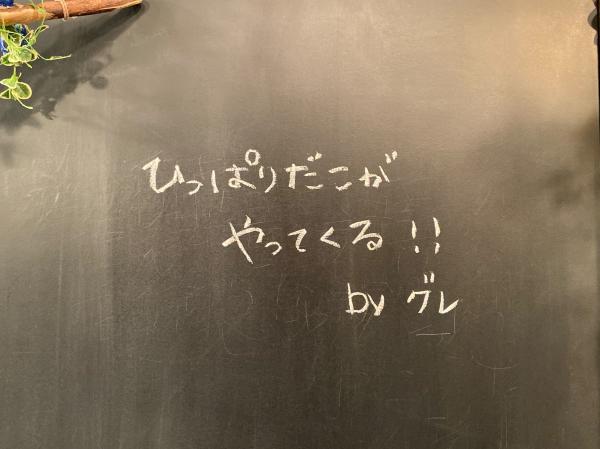 ひっぱりだこが
やってくる!!
by グレ